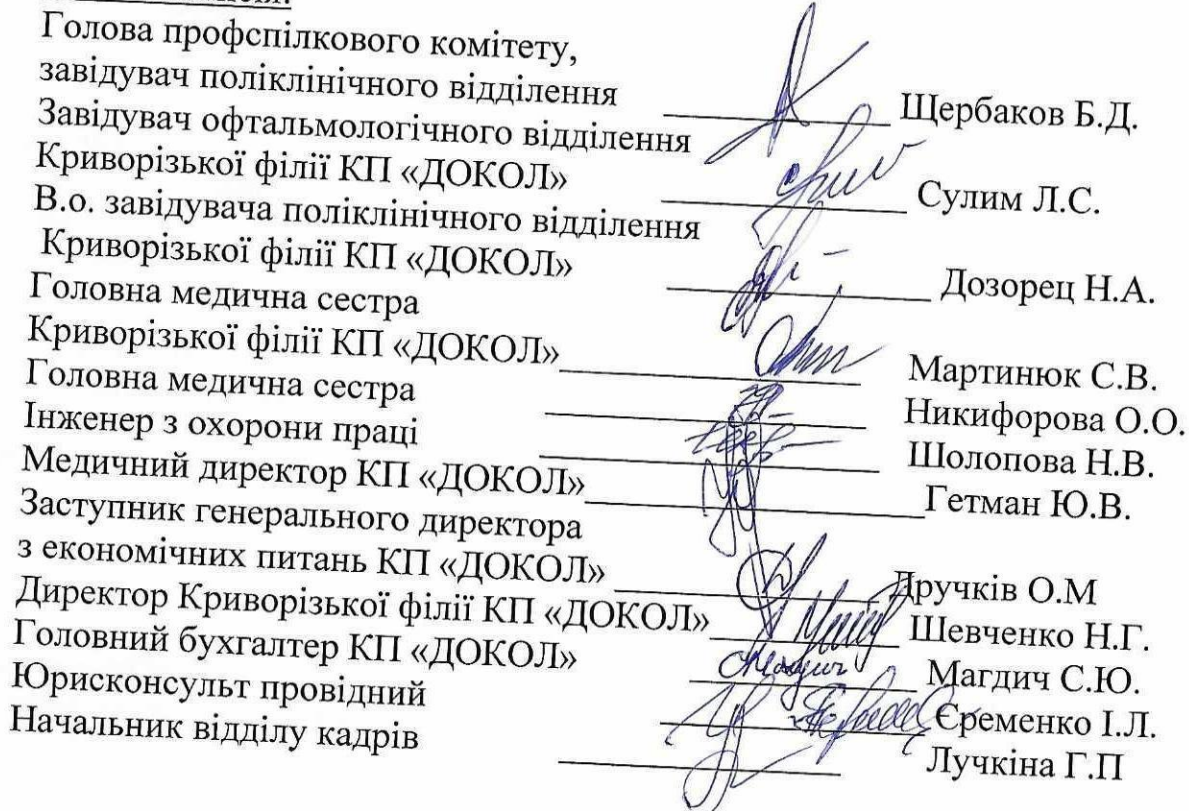 Голова профспілкового комітету,
завідувач поліклінічного відділення Щербаков Б.Д.
Завідувач офтальмологічного відділення
Криворізької філії КП «ДОКОЛ» Сулим Л.С.
В.о. завідувача поліклінічного відділення
Криворізької філії КП «ДОКОЛ» Дозорец Н.А.
Головна медична сестра
Криворізької філії КП «ДОКОЛ» Мартинюк С.В.
Головна медична сестра Никифорова О.О.
Інженер з охорони праці Шолопова Н.В.
Медичний директор КП «ДОКОЛ» Гетман Ю.В.
Заступник генерального директора
з економічних питань КП «ДОКОЛ» Дручків О.М
Директор Криворізької філії КП «ДОКОЛ» Шевченко Н.Г.
Головний бухгалтер КП «ДОКОЛ» Магдич С.Ю.
Юрисконсульт провідний Єременко І.Л.
Начальник відділу кадрів Лучкіна Г.П